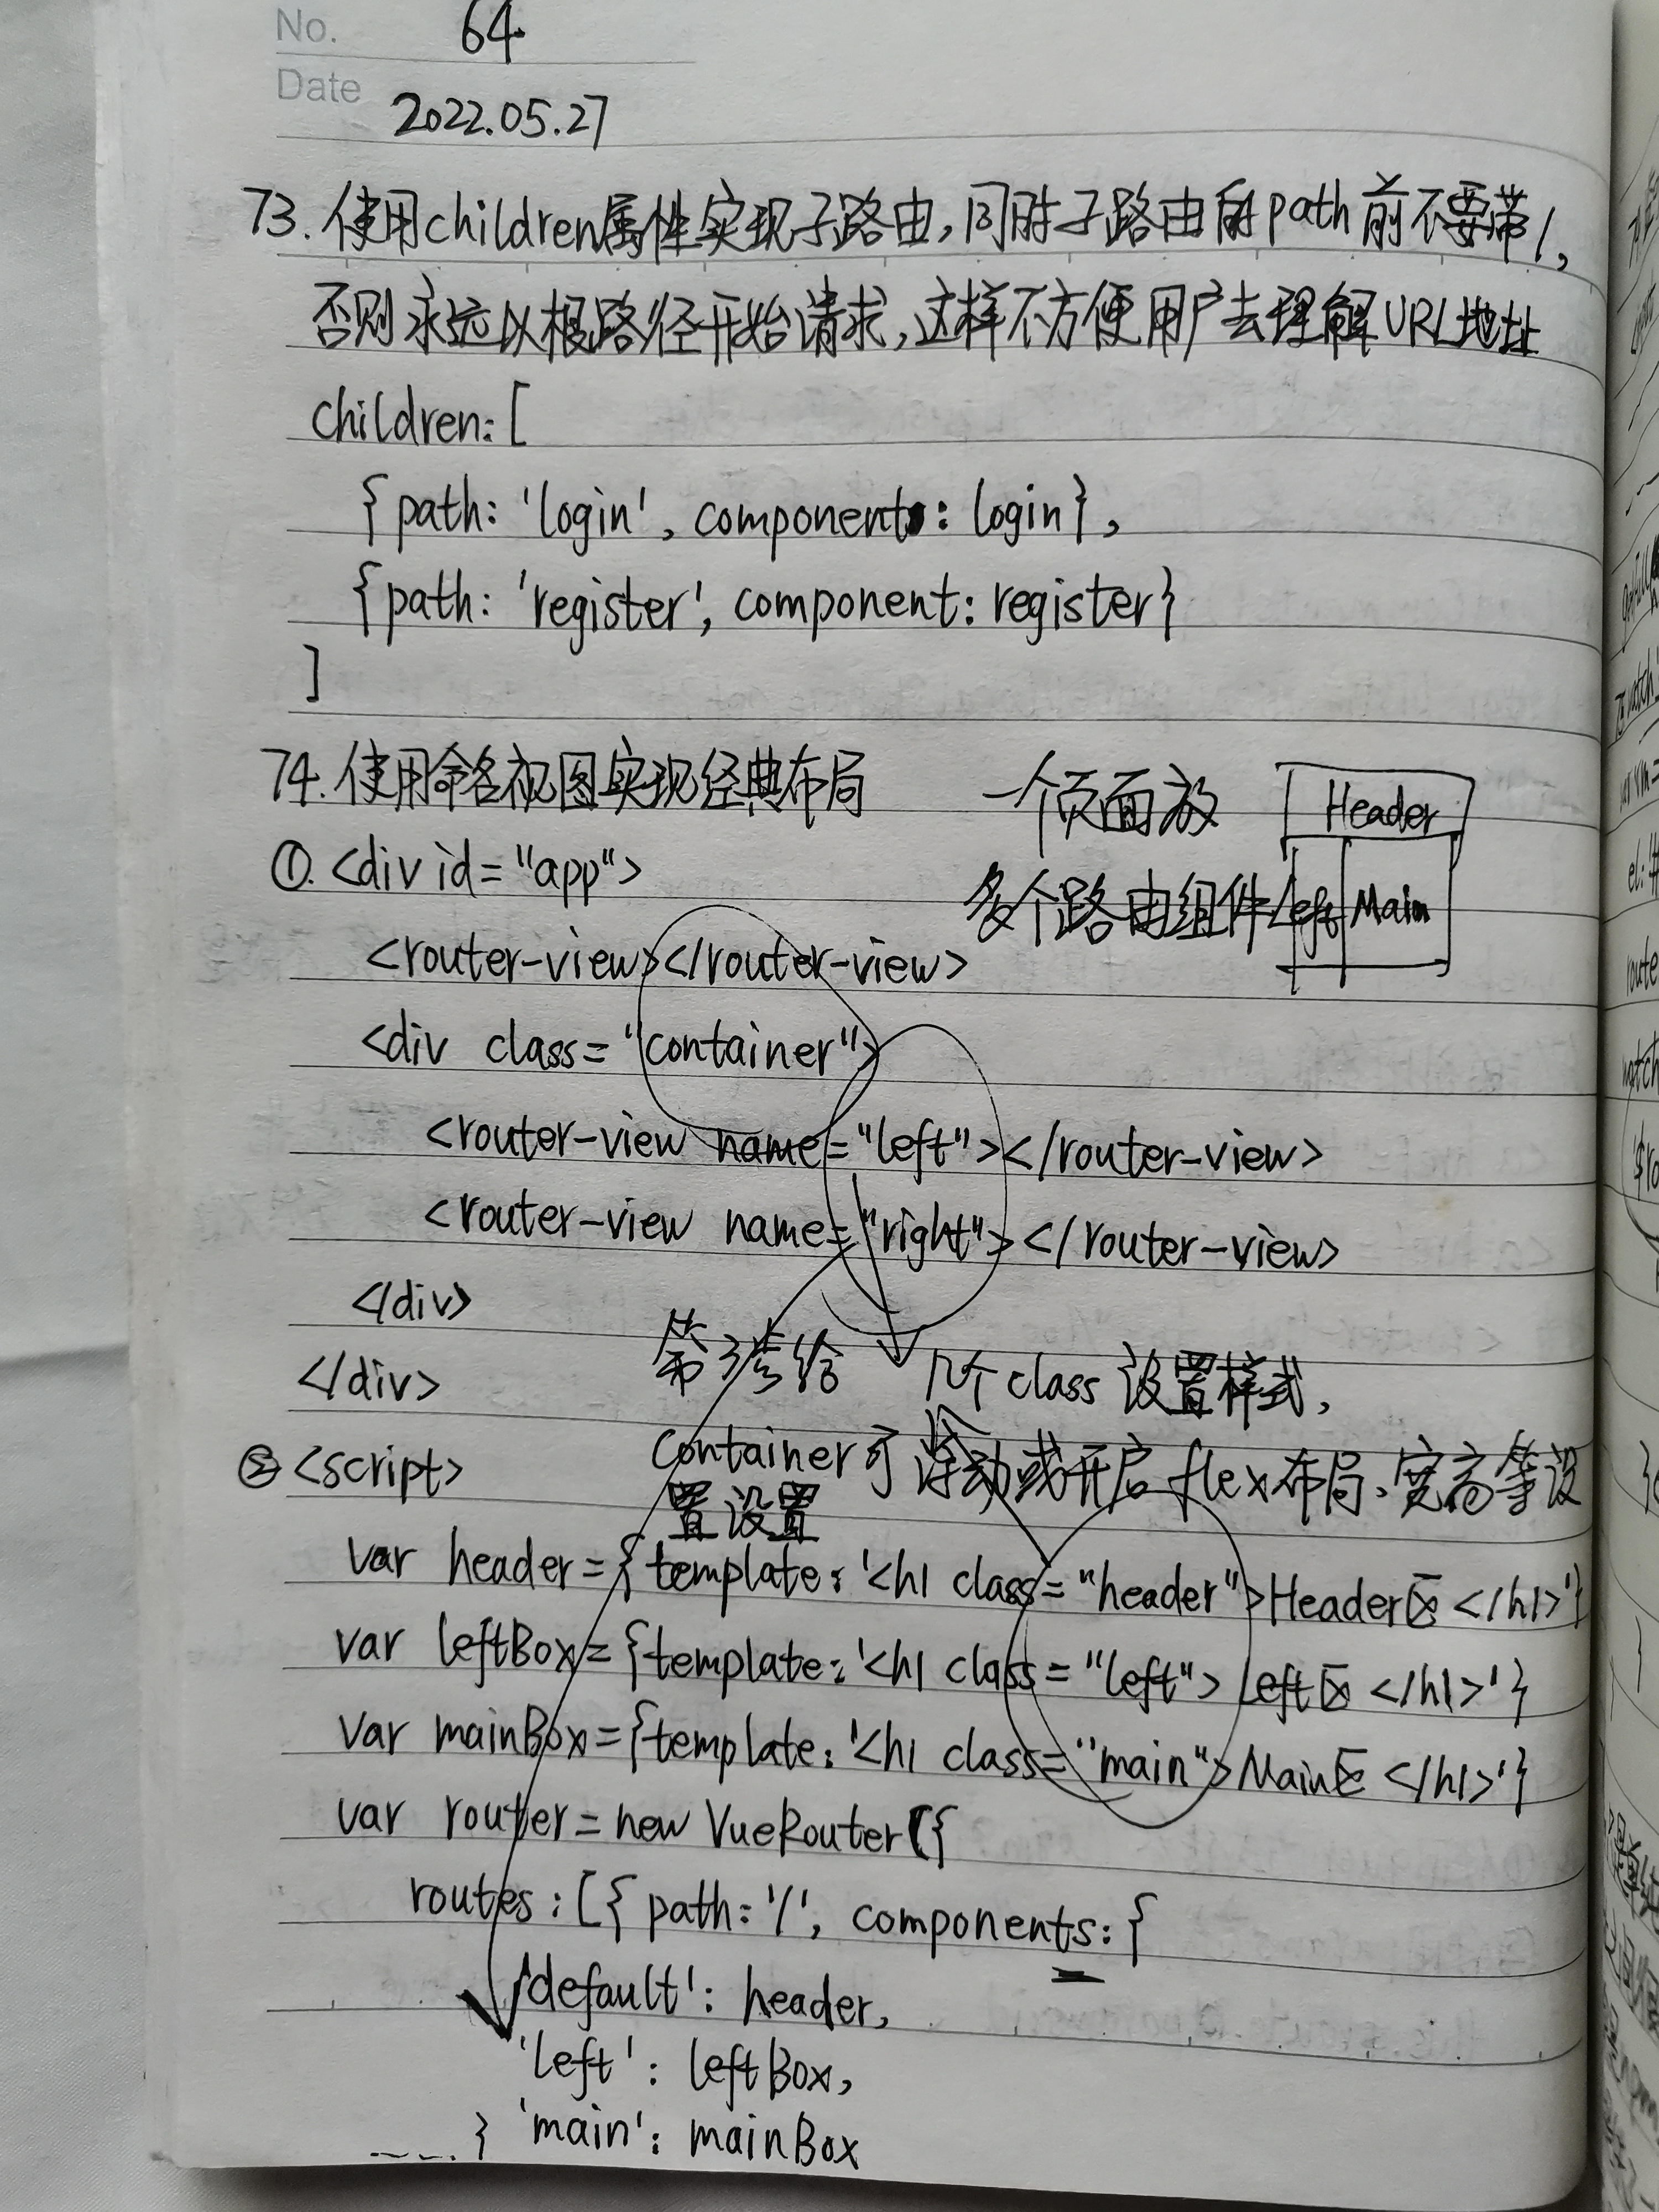 No. 64
Date 2022.05.27
73. 使用children属性实现子路由,同时子路由的path前不要带/,
否则永远以根路径开始请求,这样不方便用户去理解URL地址
children: [
{path: 'login', component: login},
{path: 'register', component: register}
]
74. 使用命名视图实现经典布局
一个页面放
多个路由组件
Header
Left
Main
①. <div id="app">
<router-view></router-view>
<div class="container">
<router-view name="left"></router-view>
<router-view name="right"></router-view>
</div>
</div>
几个class设置样式,
container可浮动或开启flex布局、宽高等设
置设置
② <script>
var header={template: '<h1 class="header">Header区</h1>'}
var leftBox={template: '<h1 class="left">Left区</h1>'}
var mainBox={template: '<h1 class="main">Main区</h1>'}
var router=new VueRouter({
routes: [{path: '/', components: {
'default': header,
'left': leftBox,
'main': mainBox
}